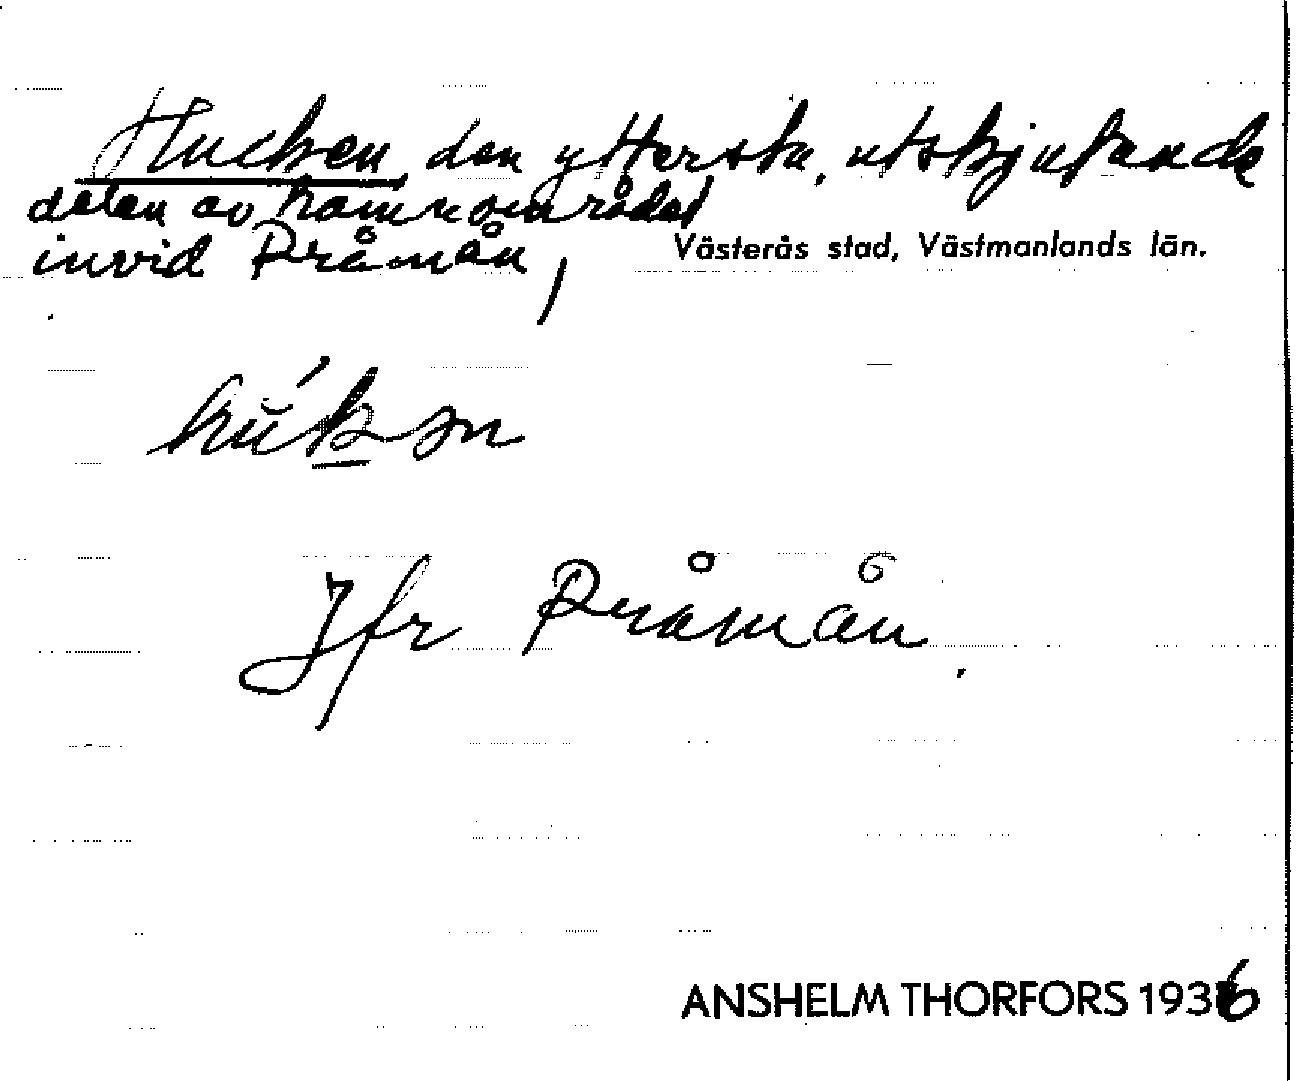 Hucken, den yttersta, utskjutande
delen av hamnområdet
invid Pråmån, Västerås stad, Västmanlands län.
Jfr Pråmån.
ANSHELM THORFORS 1936